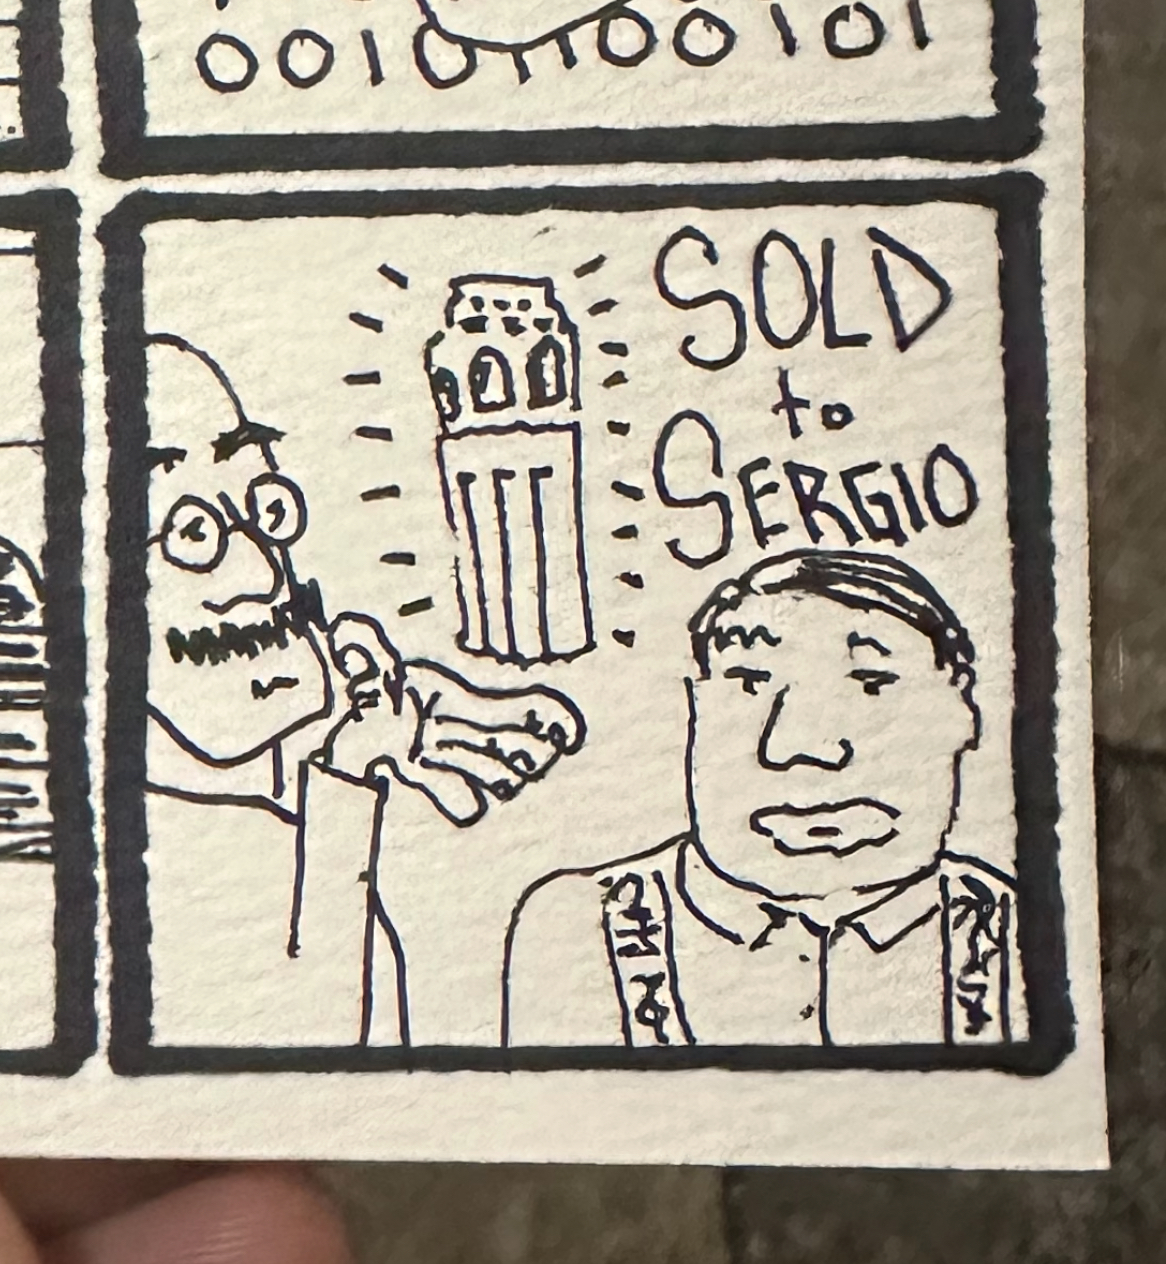 00101100101
SOLD
to
SERGIO